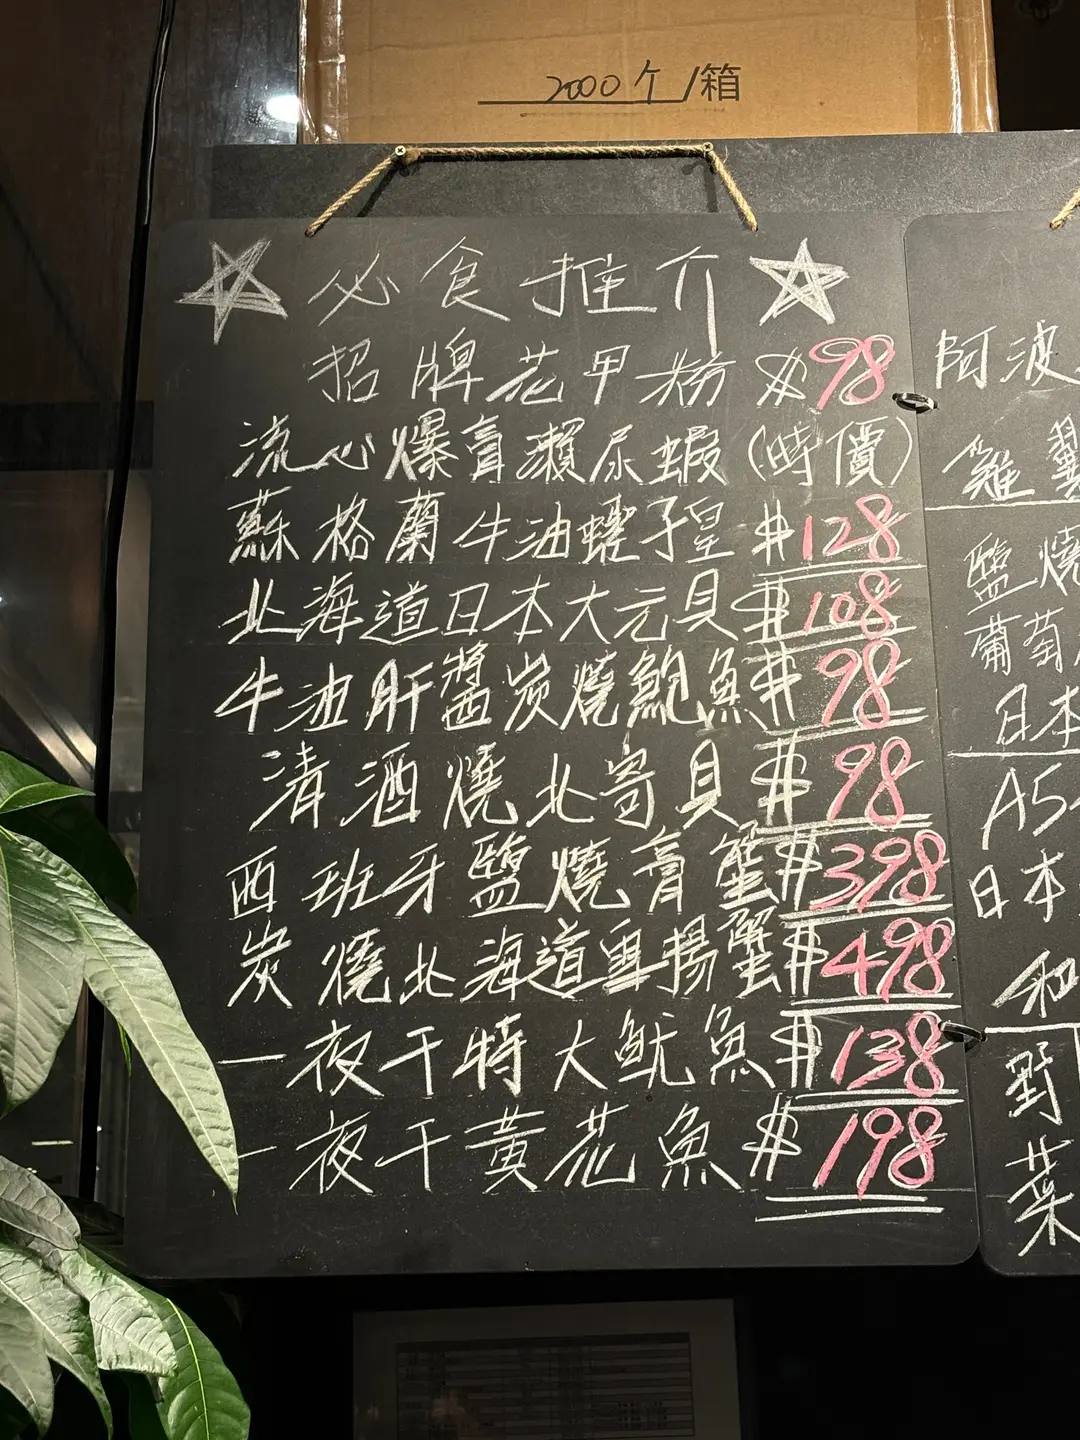 2000个/箱
必食推介
招牌花甲粉 $98
流心爆膏瀨尿蝦(時價)
蘇格蘭牛油蟶子皇 $128
北海道日本大元貝 $108
牛油肝醬炭燒鮑魚 $98
清酒燒北寄貝 $98
西班牙鹽燒膏蟹 $398
炭燒北海道雪揚蟹 $498
一夜干特大魷魚 $138
一夜干黃花魚 $198
阿波
雞翼
鹽燒
葡萄
日本
A5
日本
和
野
菜